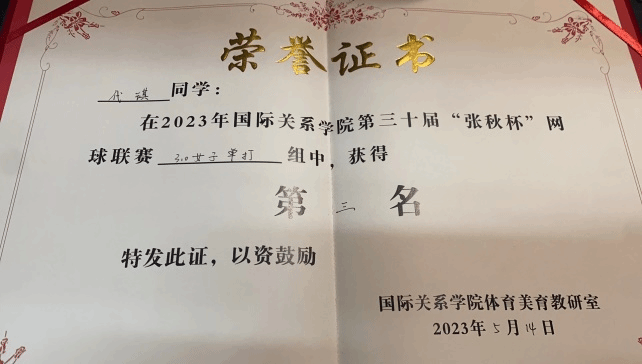 荣誉证书
代琪同学：
在2023年国际关系学院第三十届“张秋杯”网
球联赛3.0女子单打组中，获得
第三名
特发此证，以资鼓励
国际关系学院体育美育教研室
2023年5月14日